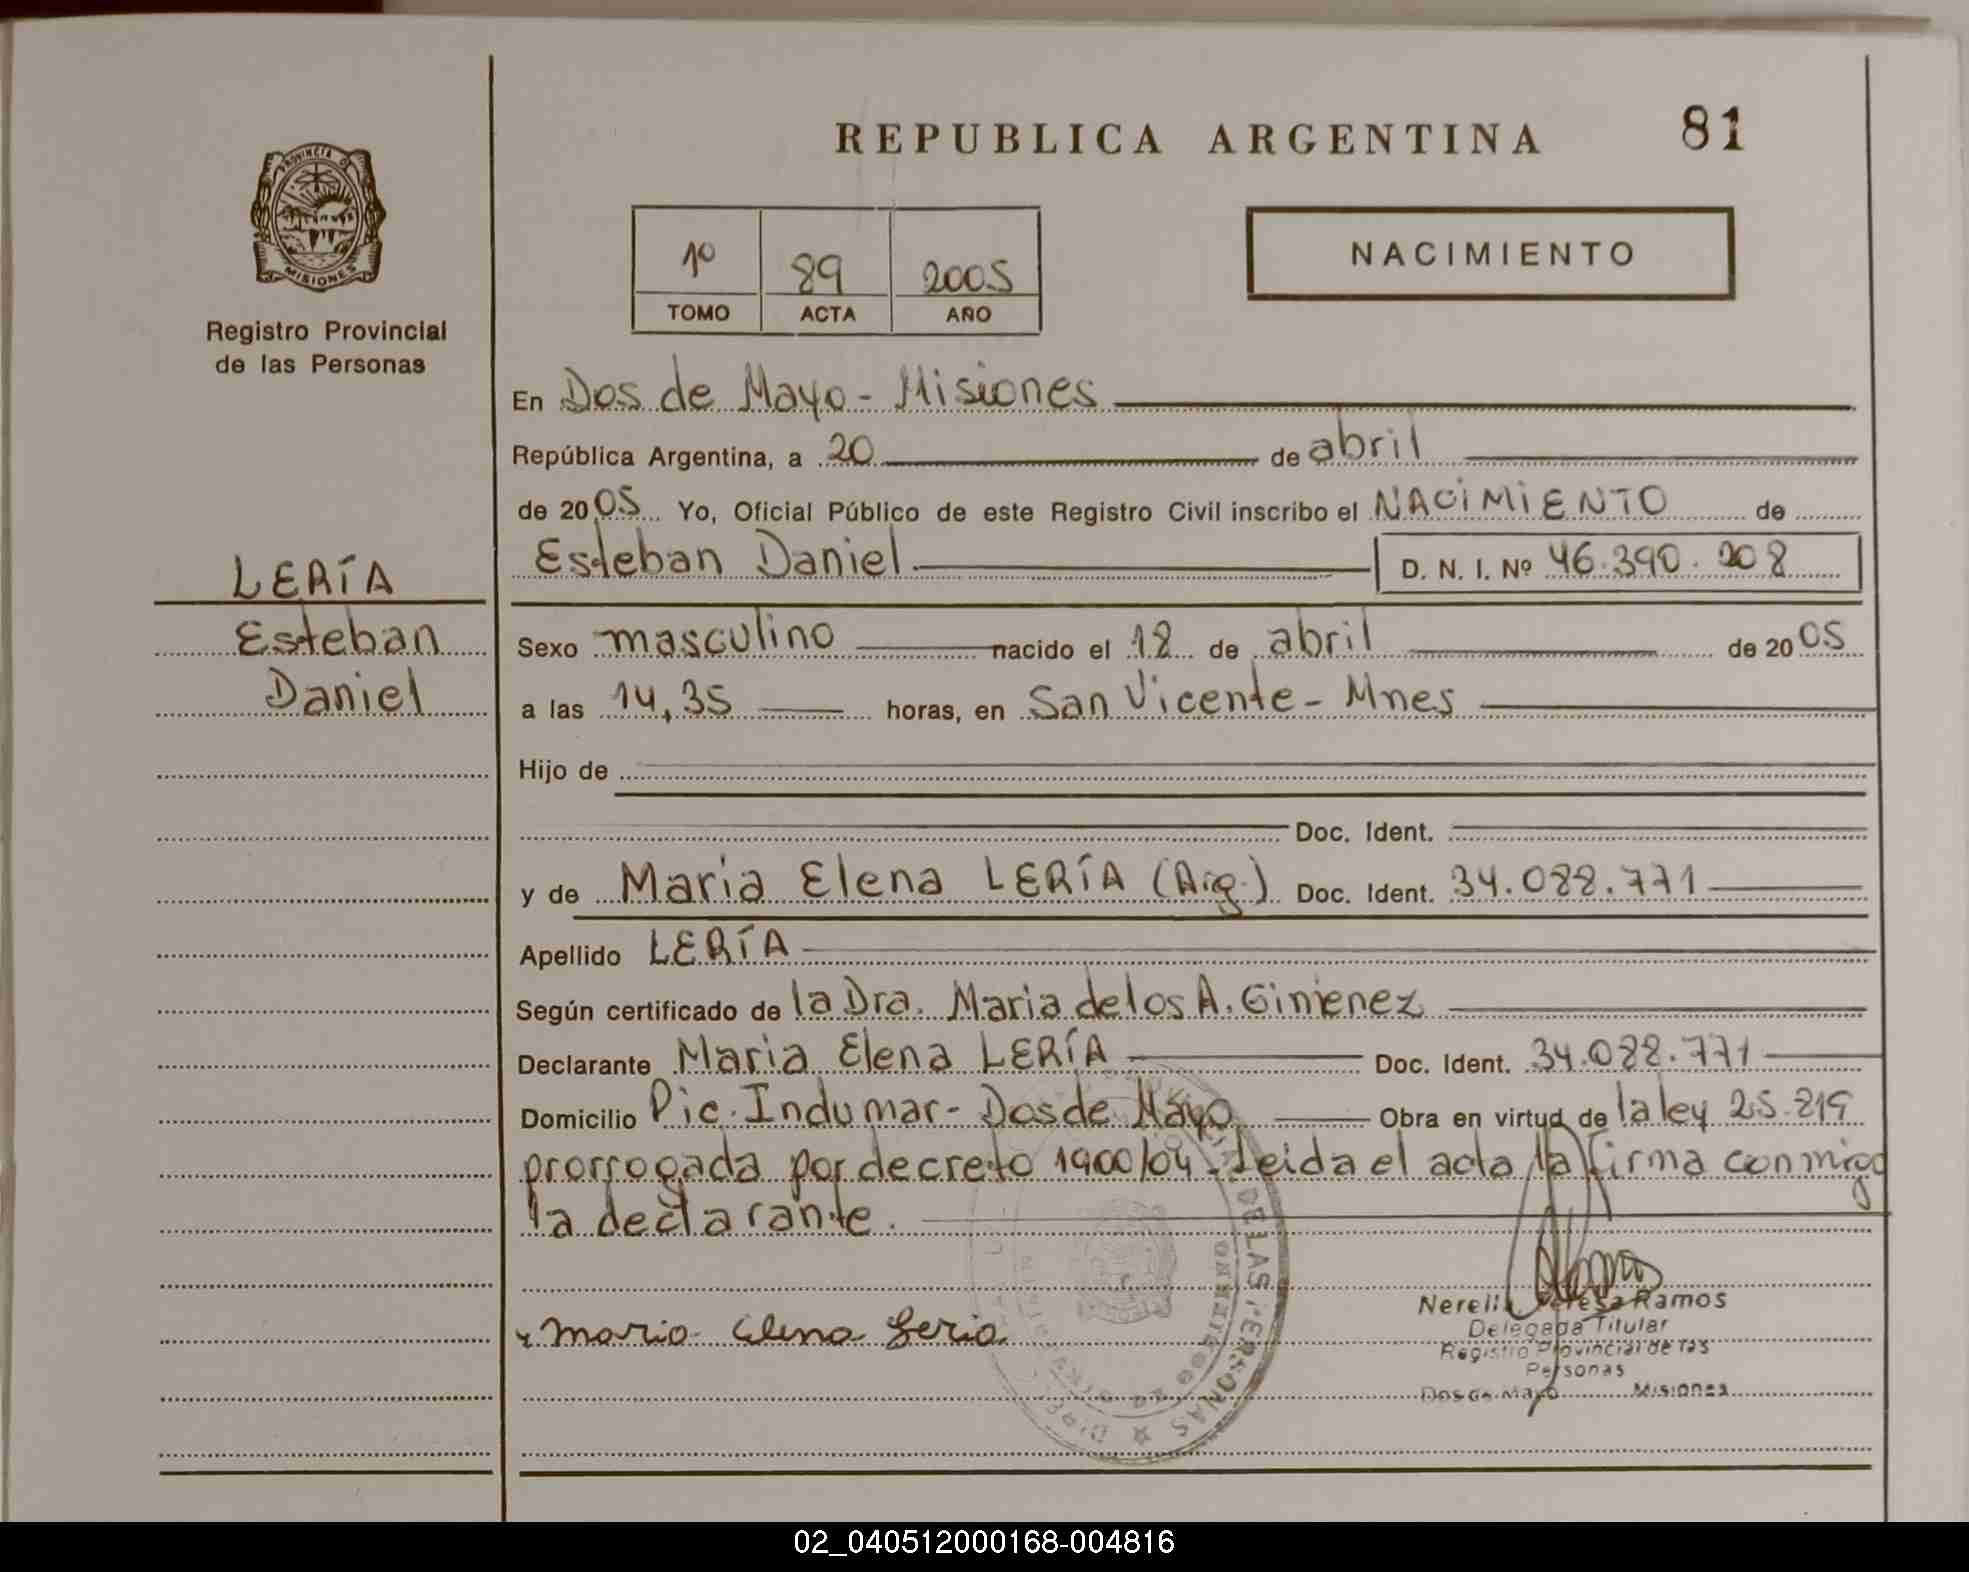 REPUBLICA ARGENTINA
81
PROVINCIA D
MISIONES
Registro Provincial
de las Personas
1º 89 2005
TOMO ACTA AÑO
NACIMIENTO
En Dos de Mayo - Misiones
República Argentina, a 20 de abril
de 2005 Yo, Oficial Público de este Registro Civil inscribo el NACIMIENTO de
Esteban Daniel D. N. I. Nº 46.390.208
LERÍA
Esteban
Daniel
Sexo masculino nacido el 18 de abril de 2005
a las 14,35 horas, en San Vicente - Mnes
Hijo de
Doc. Ident.
y de Maria Elena LERÍA (Arg.) Doc. Ident. 34.088.771
Apellido LERÍA
Según certificado de la Dra. Maria de los A. Gimenez
Declarante Maria Elena LERÍA Doc. Ident. 34.088.771
Domicilio Pic. Indumar - Dos de Mayo Obra en virtud de la ley 25.819
prorrogada por decreto 1900/04. Leida el acta la firma conmigo
la declarante.
Maria Elena Leria
DE LAS PERSONAS
Nerella Teresa Ramos
Delegada Titular
Registro Provincial de las
Personas
Dos de Mayo Misiones
02_040512000168-004816